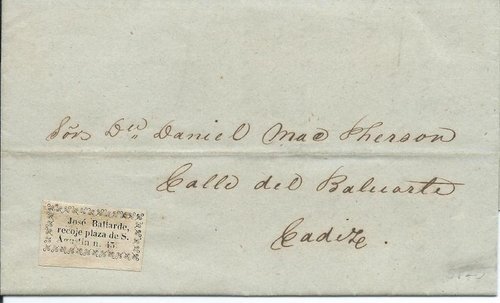 Sõr Dn Daniel Mac Pherson
Calle del Baluarte
Cadize.
José Ballarde,
recoje plaza de S.
Agustin n. 45